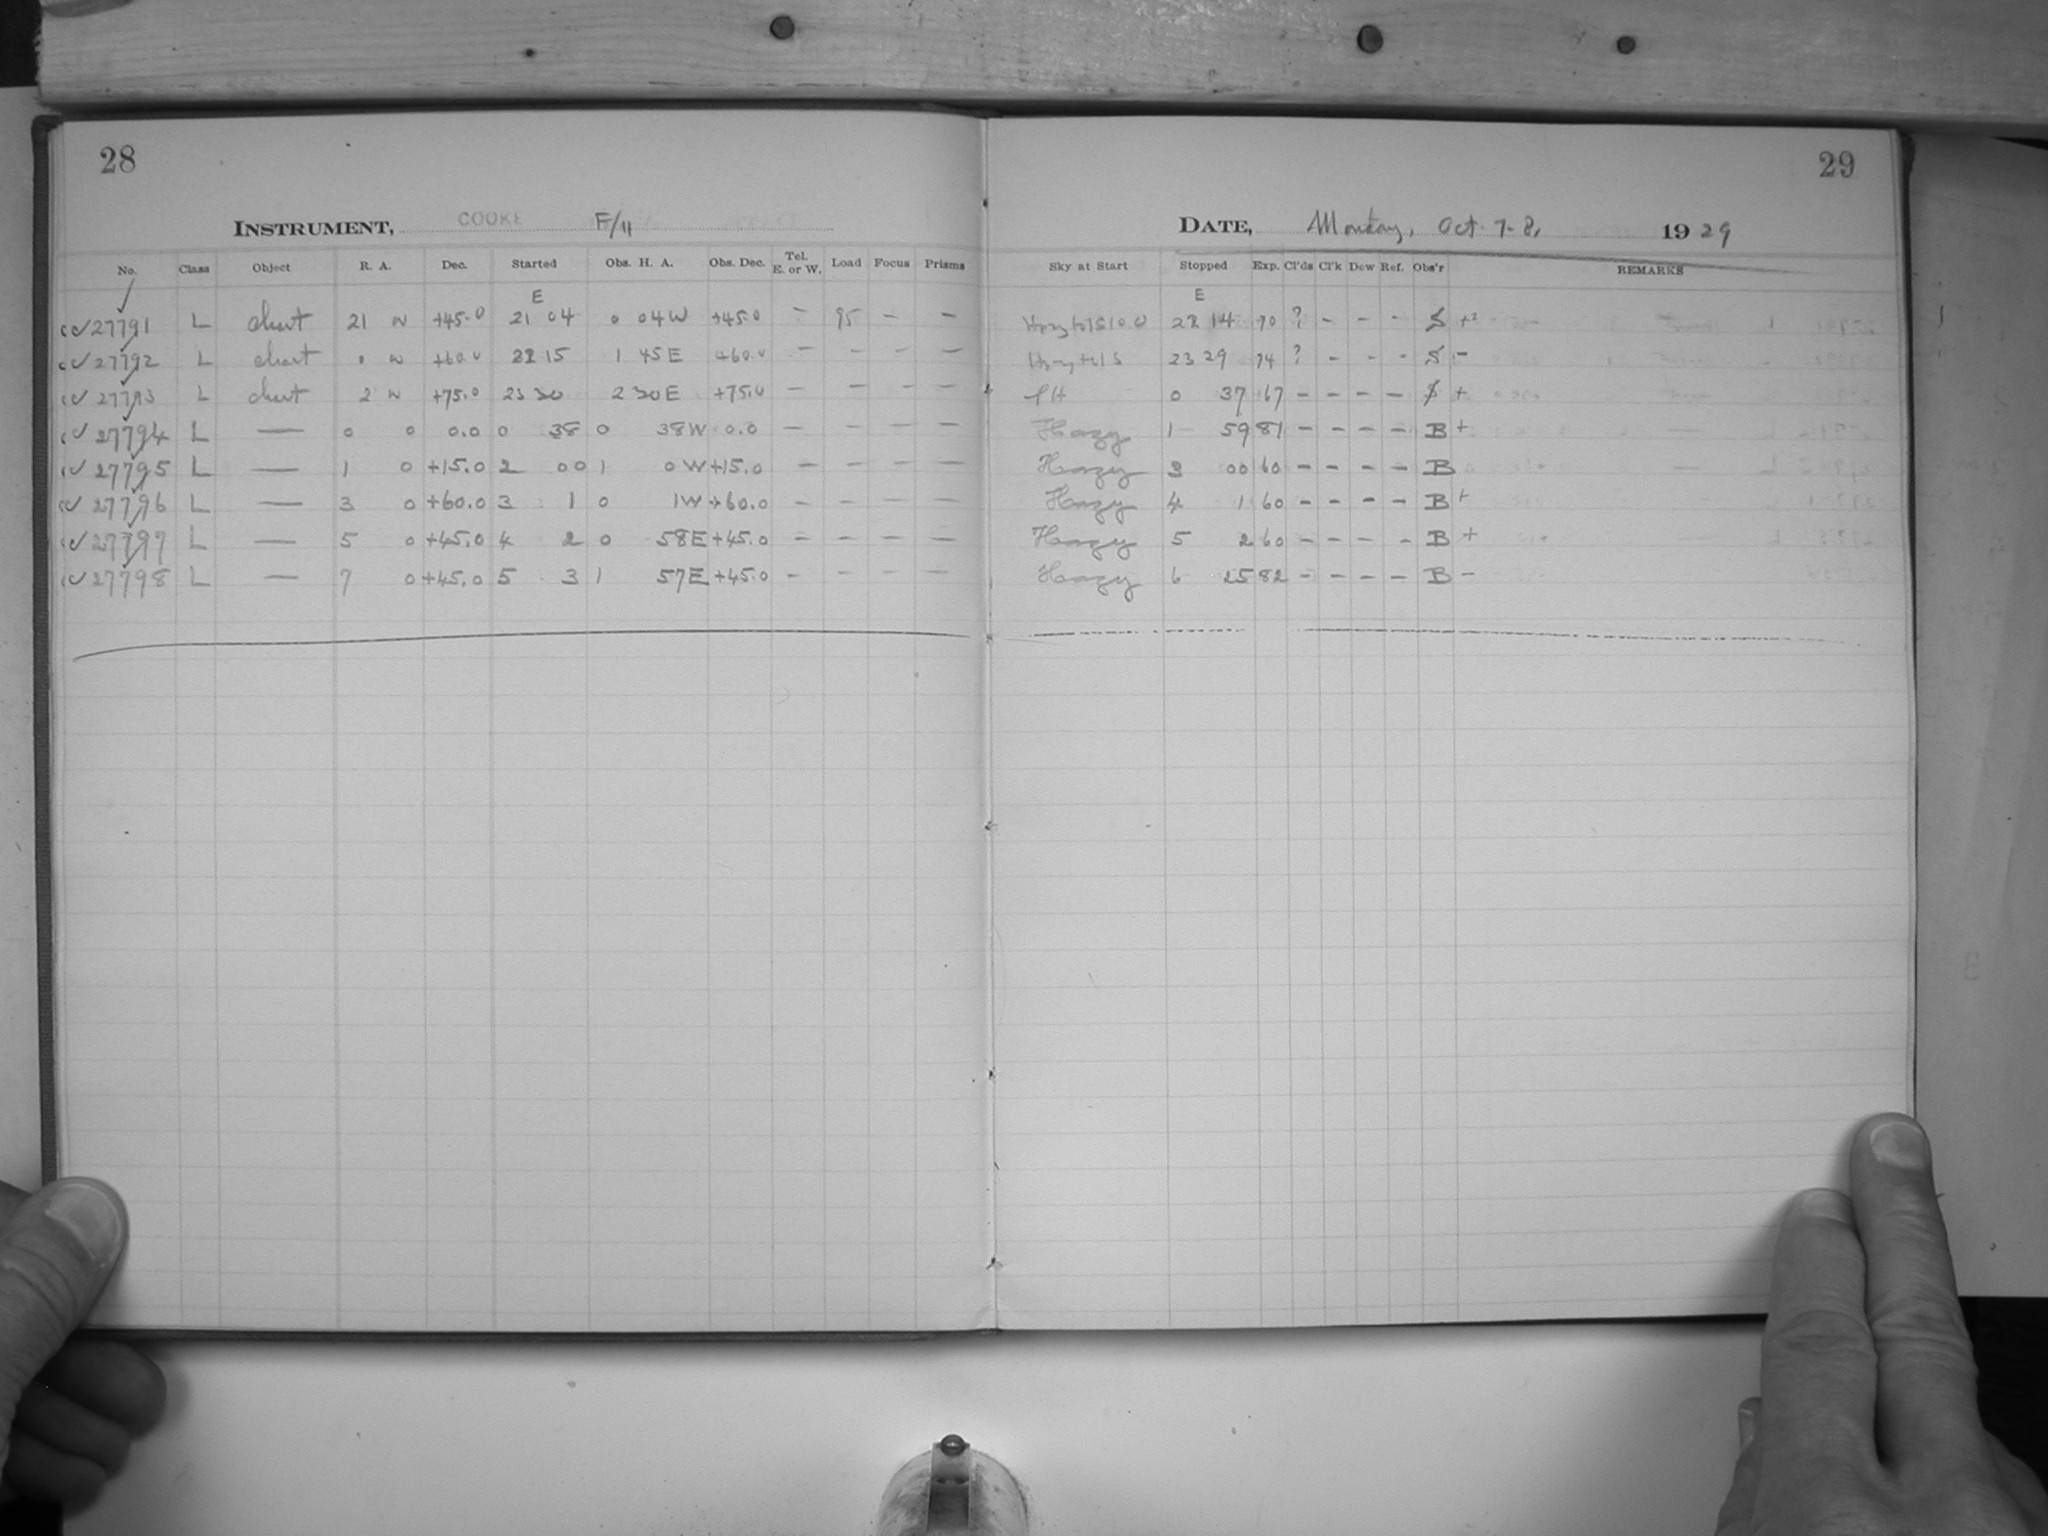 28
29
INSTRUMENT, COOKE F/11
DATE, Monday, Oct. 7-8, 1929
No. Class Object R. A. Dec. Started Obs. H. A. Obs. Dec. Tel. E. or W. Load Focus Prisms Sky at Start Stopped Exp. Cl'ds Cl'k Dew Ref. Obs'r REMARKS
E E
27791 L chart 21 +45.0 21 04 0 04 W +45.0 - 95 - - 22 14 70 ? - - - S +2
27792 L chart +60.0 22 15 1 45 E +60.0 - - - - 23 29 74 ? - - - S -
27793 L chart 2 +75.0 23 30 2 30 E +75.0 - - - - 0 37 67 - - - - S +
27794 L — 0 0 0.0 0 38 0 38 W 0.0 - - - - Hazy 1 59 81 - - - - B +
27795 L — 1 0 +15.0 2 00 1 0 W +15.0 - - - - Hazy 3 00 60 - - - - B
27796 L — 3 0 +60.0 3 1 0 1 W +60.0 - - - - Hazy 4 1 60 - - - - B +
27797 L — 5 0 +45.0 4 2 0 58 E +45.0 - - - - Hazy 5 2 60 - - - - B +
27798 L — 7 0 +45.0 5 3 1 57 E +45.0 - - - - Hazy 6 25 82 - - - - B -